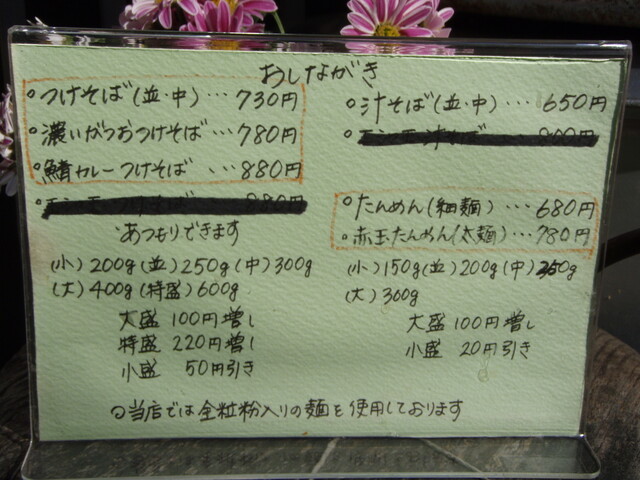 おしながき
○つけそば(並・中)…730円
○濃いがつおつけそば…780円
○鯖カレーつけそば…880円
あつもりできます
(小)200g(並)250g(中)300g
(大)400g(特盛)600g
大盛 100円増し
特盛 220円増し
小盛 50円引き
○汁そば(並・中)…650円
○たんめん(細麺)…680円
○赤玉たんめん(太麺)…780円
(小)150g(並)200g(中)250g
(大)300g
大盛 100円増し
小盛 20円引き
○当店では全粒粉入りの麺を使用しております